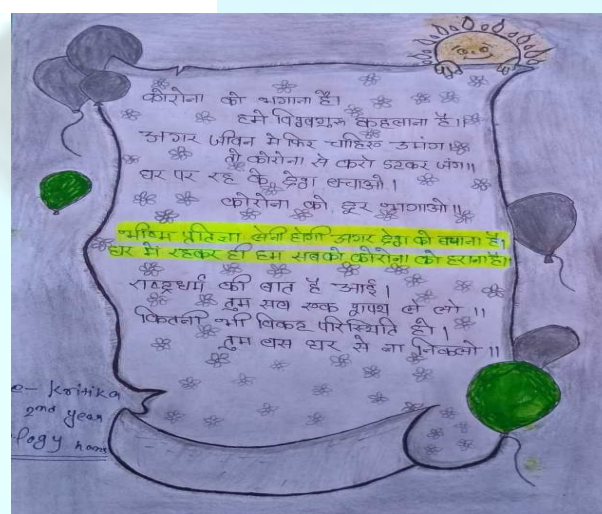 कोरोना को भगाना है।
हमे विश्वगुरु कहलाना है।।
अगर जीवन मे फिर चाहिए उमंग।
तो कोरोना से करो डटकर जंग।।
घर पर रह के देश बचाओ।
कोरोना को दूर भगाओ।।
भीष्म प्रतिज्ञा लेनी होगी अगर देश को बचाना है।
घर में रहकर ही हम सबको कोरोना को हराना है।।
राष्ट्रधर्म की बात है आई।
तुम सब एक शपथ ले लो।।
कितनी भी विकट परिस्थिति हो।
तुम बस घर से ना निकलो।।
e- Kritika
2nd year
logy hons